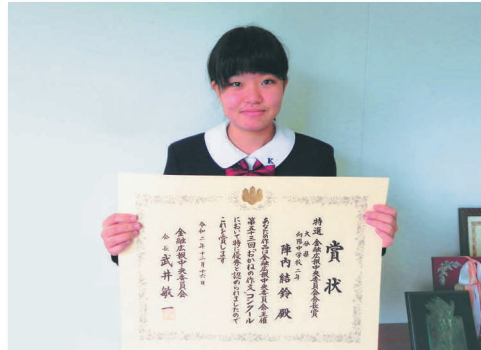 賞状
特選 金融広報中央委員会会長賞
大分県
向陽中学校 二年
陣内結鈴 殿
あなたの作品は金融広報中央委員会主催
第五十三回「おかねの作文」コンクール
において特に優秀と認められましたので
これを賞します
令和二年十二月十六日
金融広報中央委員会
会長 武井敏一
K